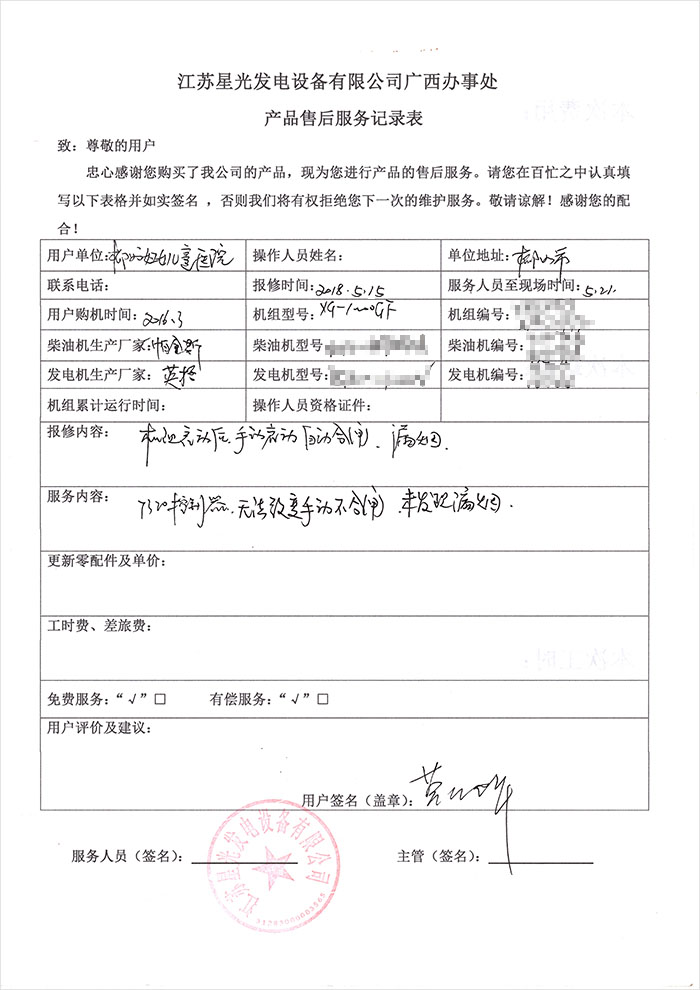 江苏星光发电设备有限公司广西办事处
产品售后服务记录表
致：尊敬的用户
忠心感谢您购买了我公司的产品，现为您进行产品的售后服务。请您在百忙之中认真填
写以下表格并如实签名 ，否则我们将有权拒绝您下一次的维护服务。敬请谅解！感谢您的配
合！
用户单位：柳州妇女儿童医院 操作人员姓名： 单位地址：柳州市
联系电话： 报修时间：2018.5.15 服务人员至现场时间：5.21.
用户购机时间：2016.3 机组型号：XG-1000GF 机组编号：
柴油机生产厂家： 柴油机型号： 柴油机编号：
发电机生产厂家：英格 发电机型号： 发电机编号：
机组累计运行时间： 操作人员资格证件：
报修内容：机组启动后，手动启动自动合闸、漏烟.
服务内容：7320控制器，无法改变手动不合闸 未发现漏烟.
更新零配件及单价：
工时费、差旅费：
免费服务：“√”□ 有偿服务：“√”□
用户评价及建议：
用户签名（盖章）：
服务人员（签名）： 主管（签名）：
江苏星光发电设备有限公司